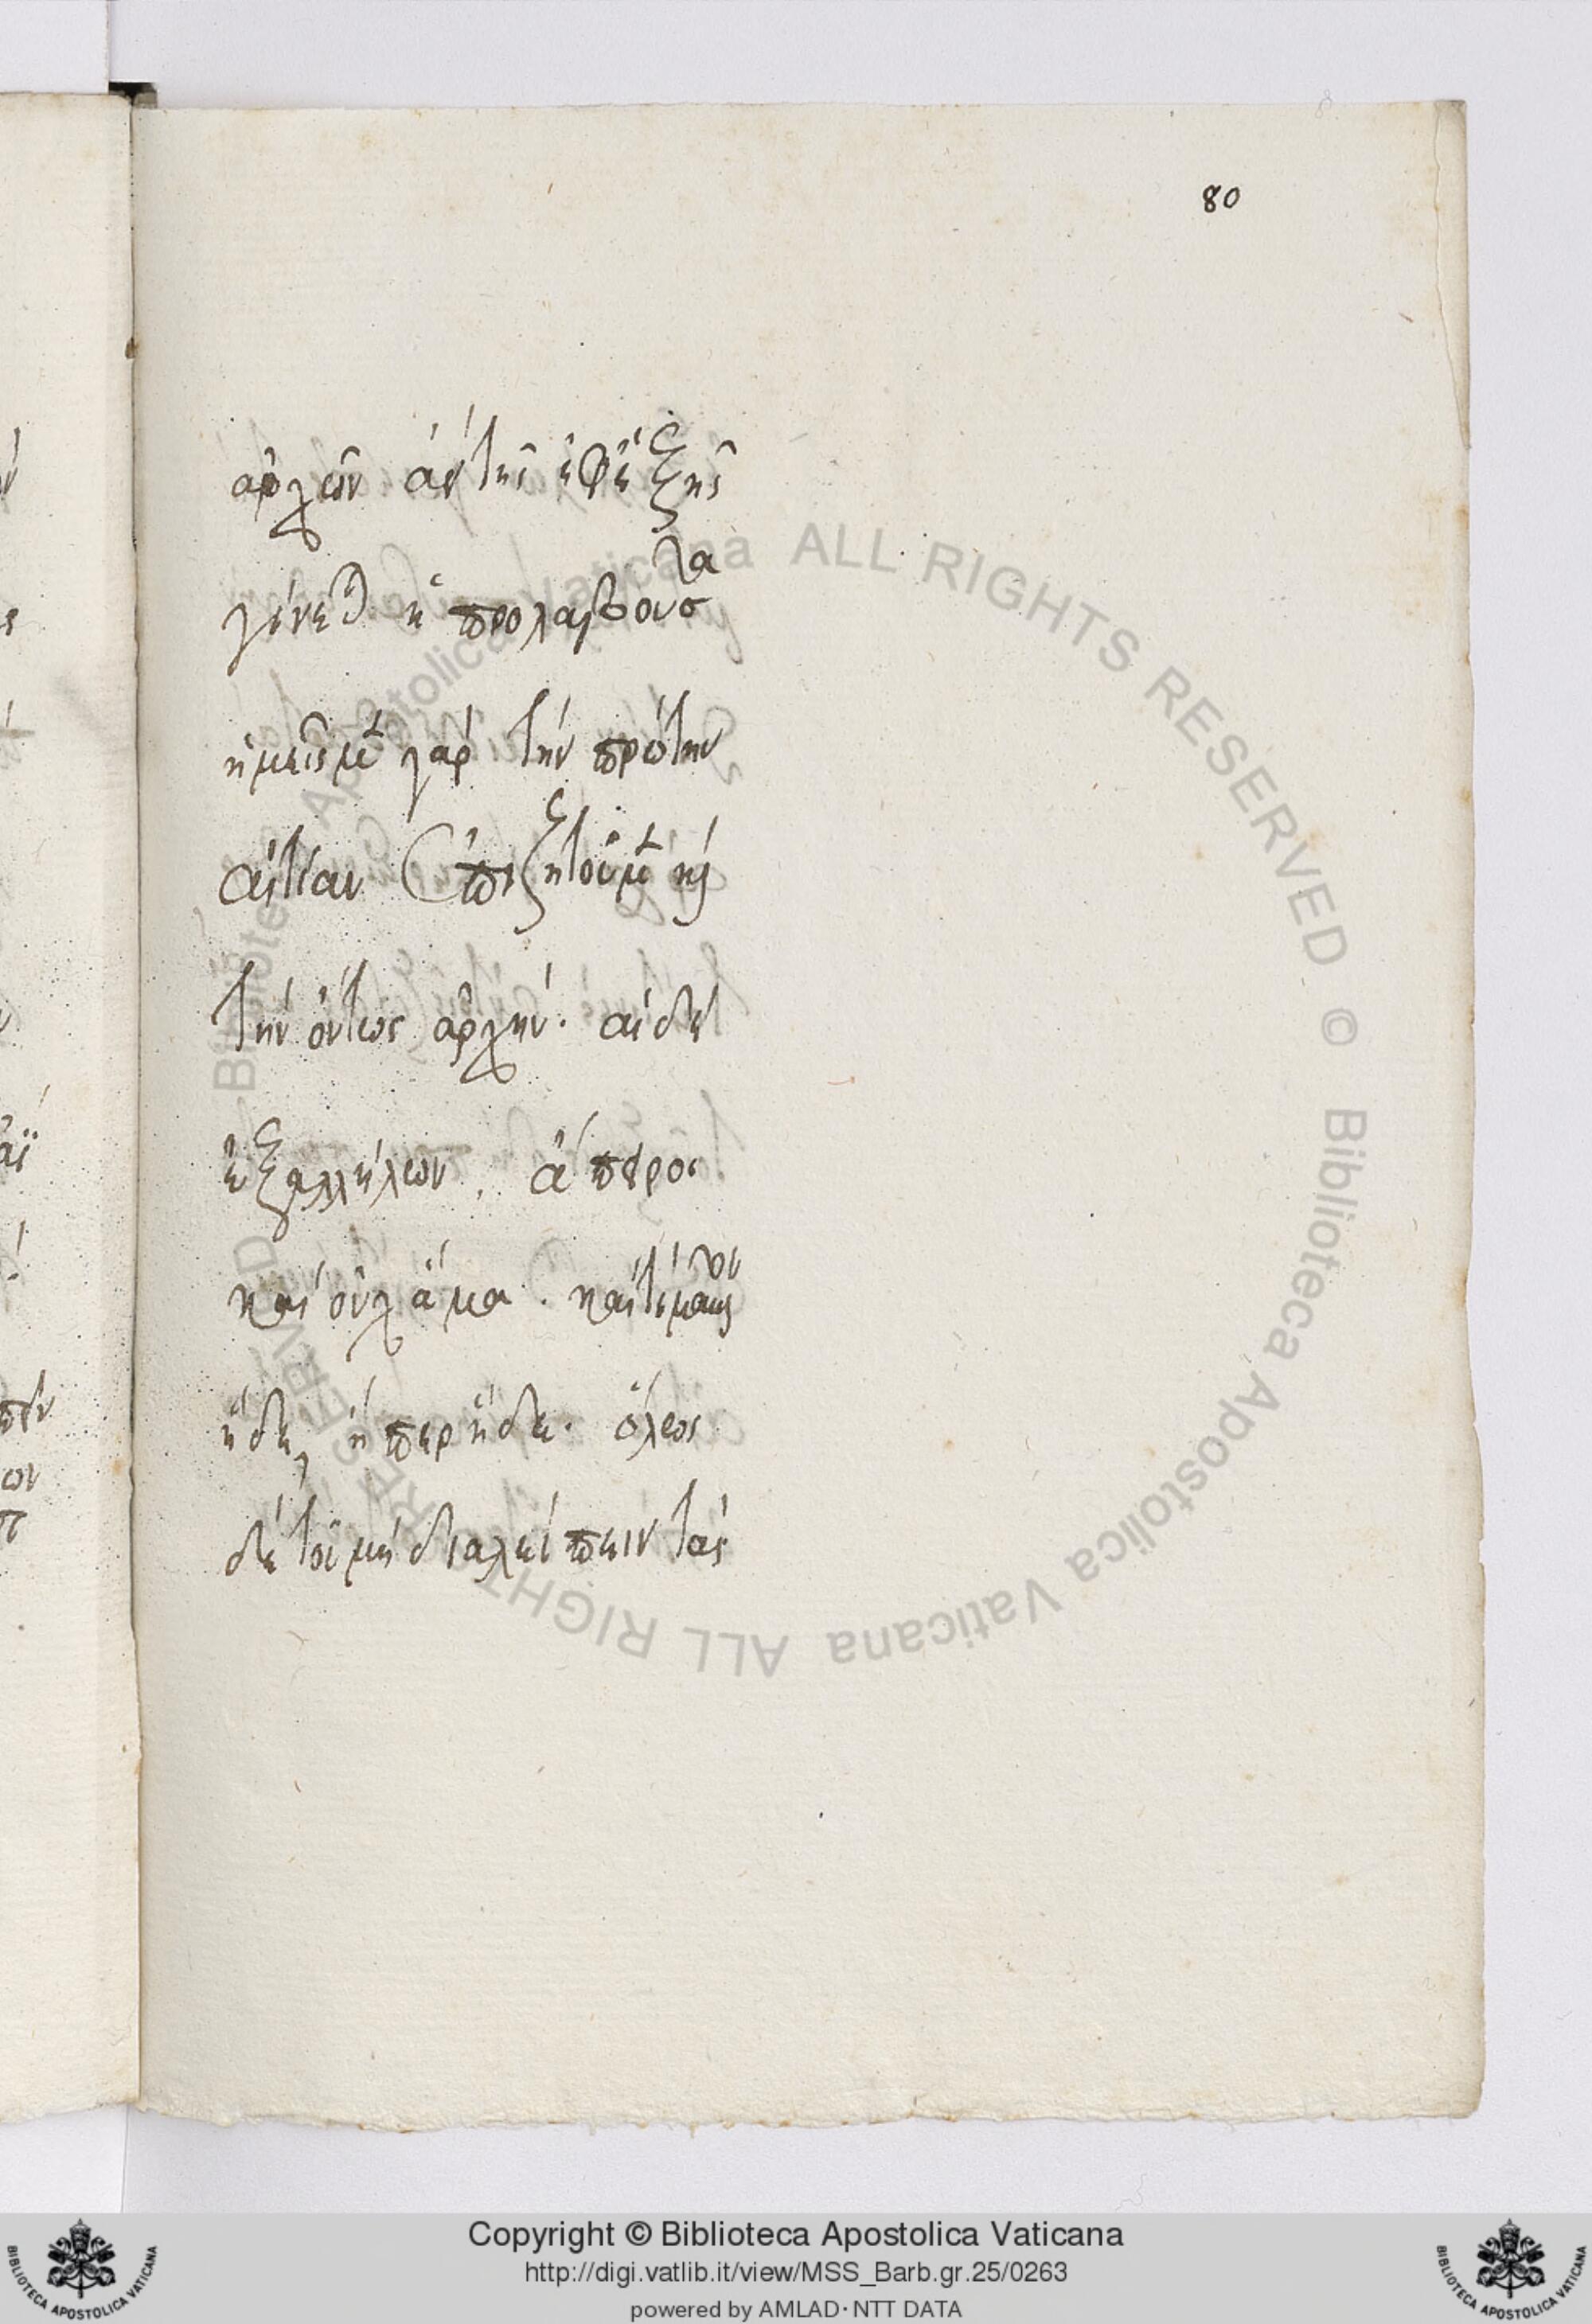 80
ἀρχῶν ἀντης ἐφεξῆς
γίνεται ἡ προλαβοῦσα
ἡμεῖς μὲν γὰρ τὴν πρώτην
αἰτίαν ἐπιζητοῦμεν καὶ
τὴν ὄντως ἀρχήν. αἱ δὲ
ἐξ ἀλλήλων, ἄπειροι
καὶ οὐχ ἅμα. καὶ τί μᾶλλον
ἥδε, ἤπερ ἥδε. ὅλως
δὲ τὸ μὴ διαλείπειν τὰς
Biblioteca Apostolica Vaticana ALL RIGHTS RESERVED © Biblioteca Apostolica Vaticana ALL RIGHTS RESERVED ©
Copyright © Biblioteca Apostolica Vaticana
http://digi.vatlib.it/view/MSS_Barb.gr.25/0263
powered by AMLAD·NTT DATA
BIBLIOTECA APOSTOLICA VATICANA
BIBLIOTECA APOSTOLICA VATICANA